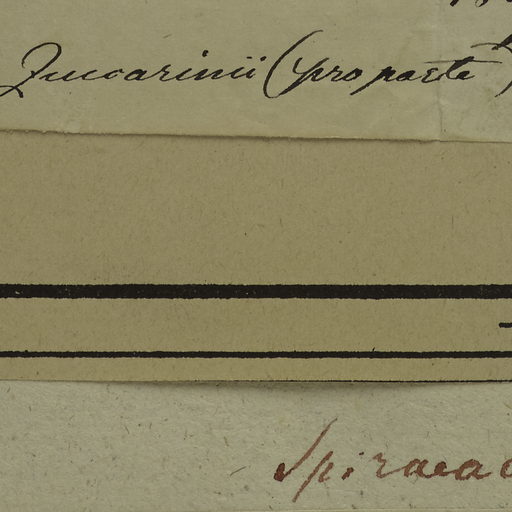 Zuccarinii (pro parte
Spiraea